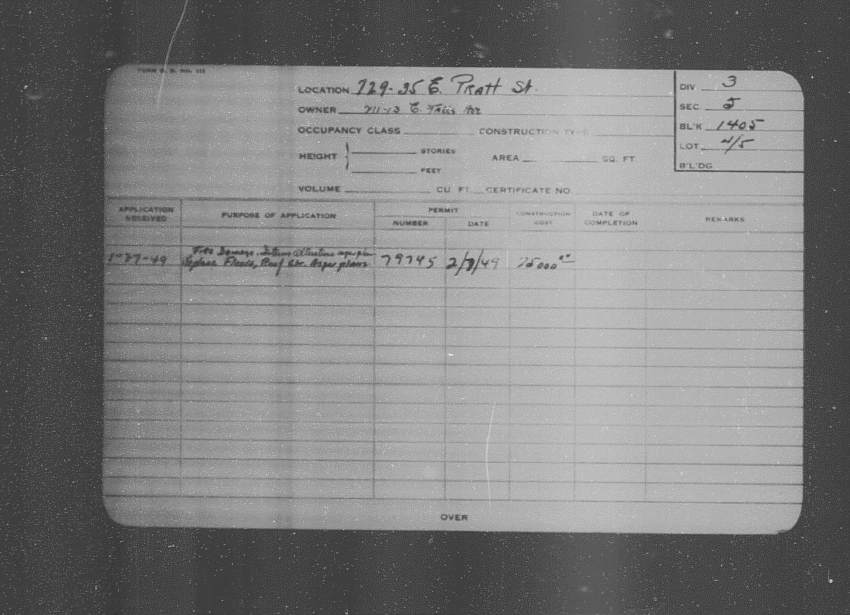 FORM B. B. NO. 111
LOCATION 729-35 E. Pratt St.
OWNER 711-13 E.
OCCUPANCY CLASS CONSTRUCTION TYPE
HEIGHT STORIES
FEET
AREA SQ. FT.
VOLUME CU. FT. CERTIFICATE NO.
DIV 3
SEC 5
BL'K 1405
LOT 4/5
B'L'DG.
APPLICATION RECEIVED
PURPOSE OF APPLICATION
PERMIT
NUMBER DATE
CONSTRUCTION COST
DATE OF COMPLETION
REMARKS
Fire Damage. Interior Alterations as per plan
1-27-49 Replace Floors, Roof Etc. As per plans 79745 2/3/49 75000
OVER